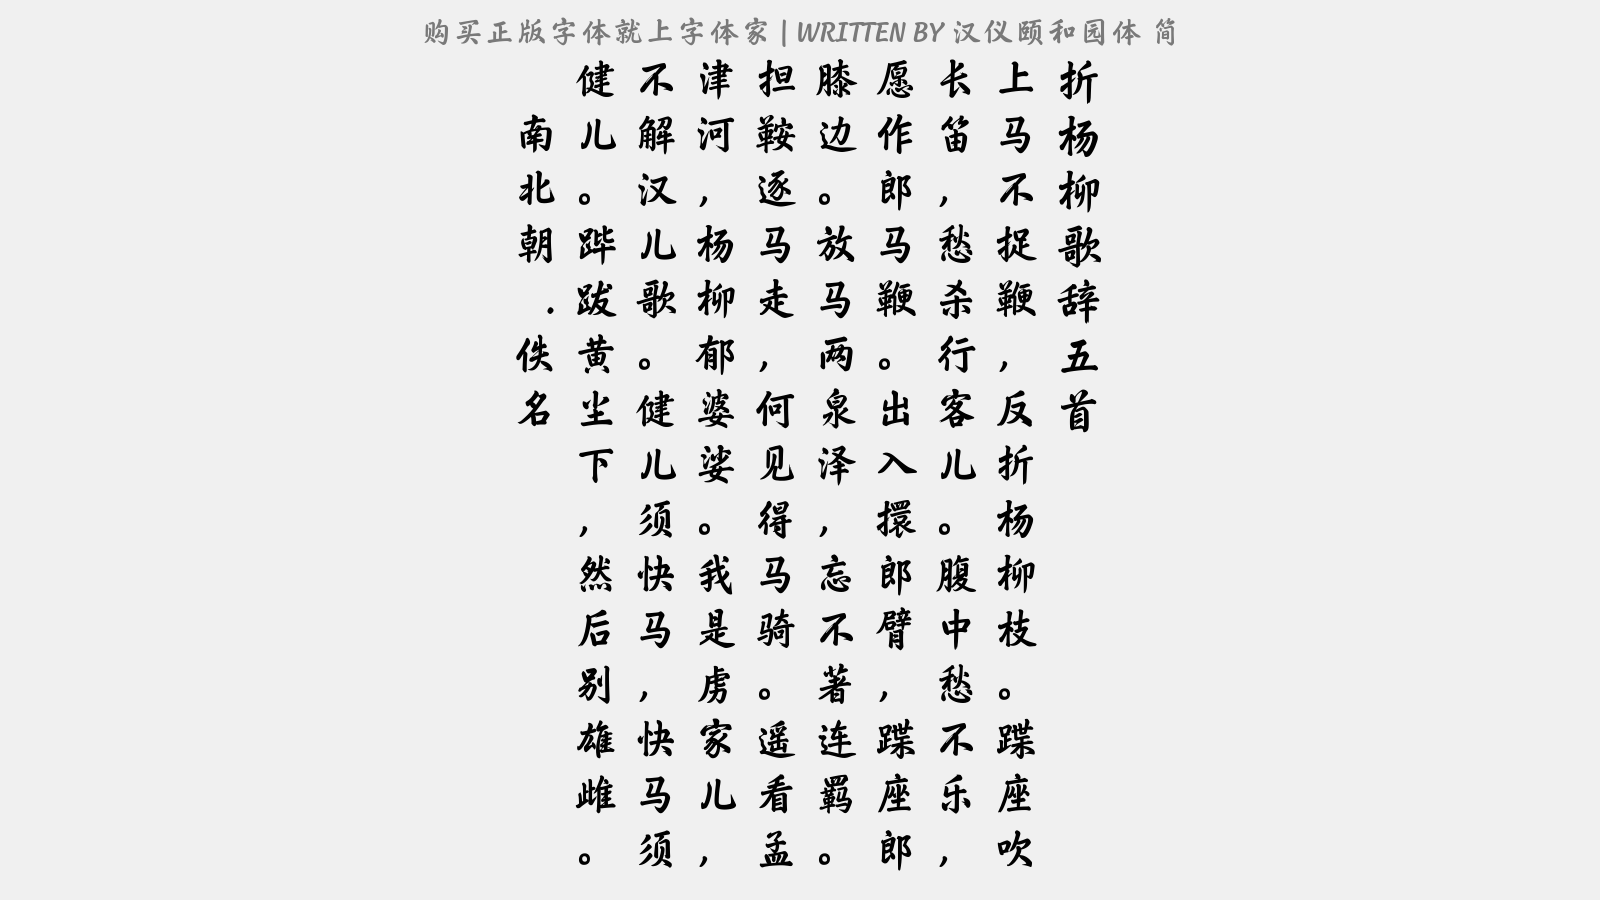 购买正版字体就上字体家 | WRITTEN BY 汉仪颐和园体 简
折杨柳歌辞五首
上马不捉鞭，反折杨柳枝。蹀座吹
长笛，愁杀行客儿。腹中愁不乐，
愿作郎马鞭。出入擐郎臂，蹀座郎
膝边。放马两泉泽，忘不著连羁。
担鞍逐马走，何见得马骑。遥看孟
津河，杨柳郁婆娑。我是虏家儿，
不解汉儿歌。健儿须快马，快马须
健儿。跸跋黄尘下，然后别雄雌。
南北朝.佚名